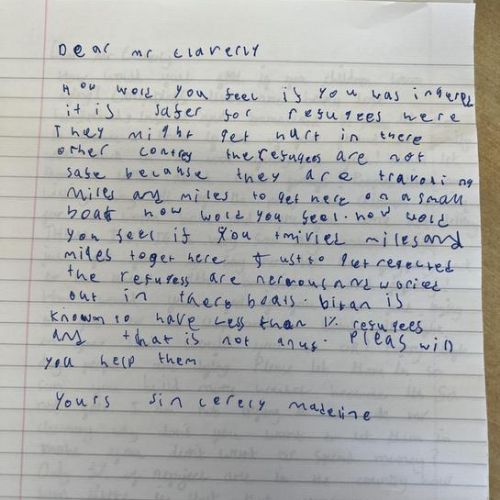 Dear mr claverly
How wold you feel if you was ingered
it is safer for refugees here
They might get hurt in there
other contrey the refugees are not
safe because they are travoling
miles and miles to get here on a small
boat how wold you feel. how wold
you feel if you travled miles and
miles to get here Just to get rejected
the refugess are nervous and woried
out in there boats. bitan is
known to have less than 1% refugees
and that is not anuf. Pleas will
you help them
Yours sincerely madeline